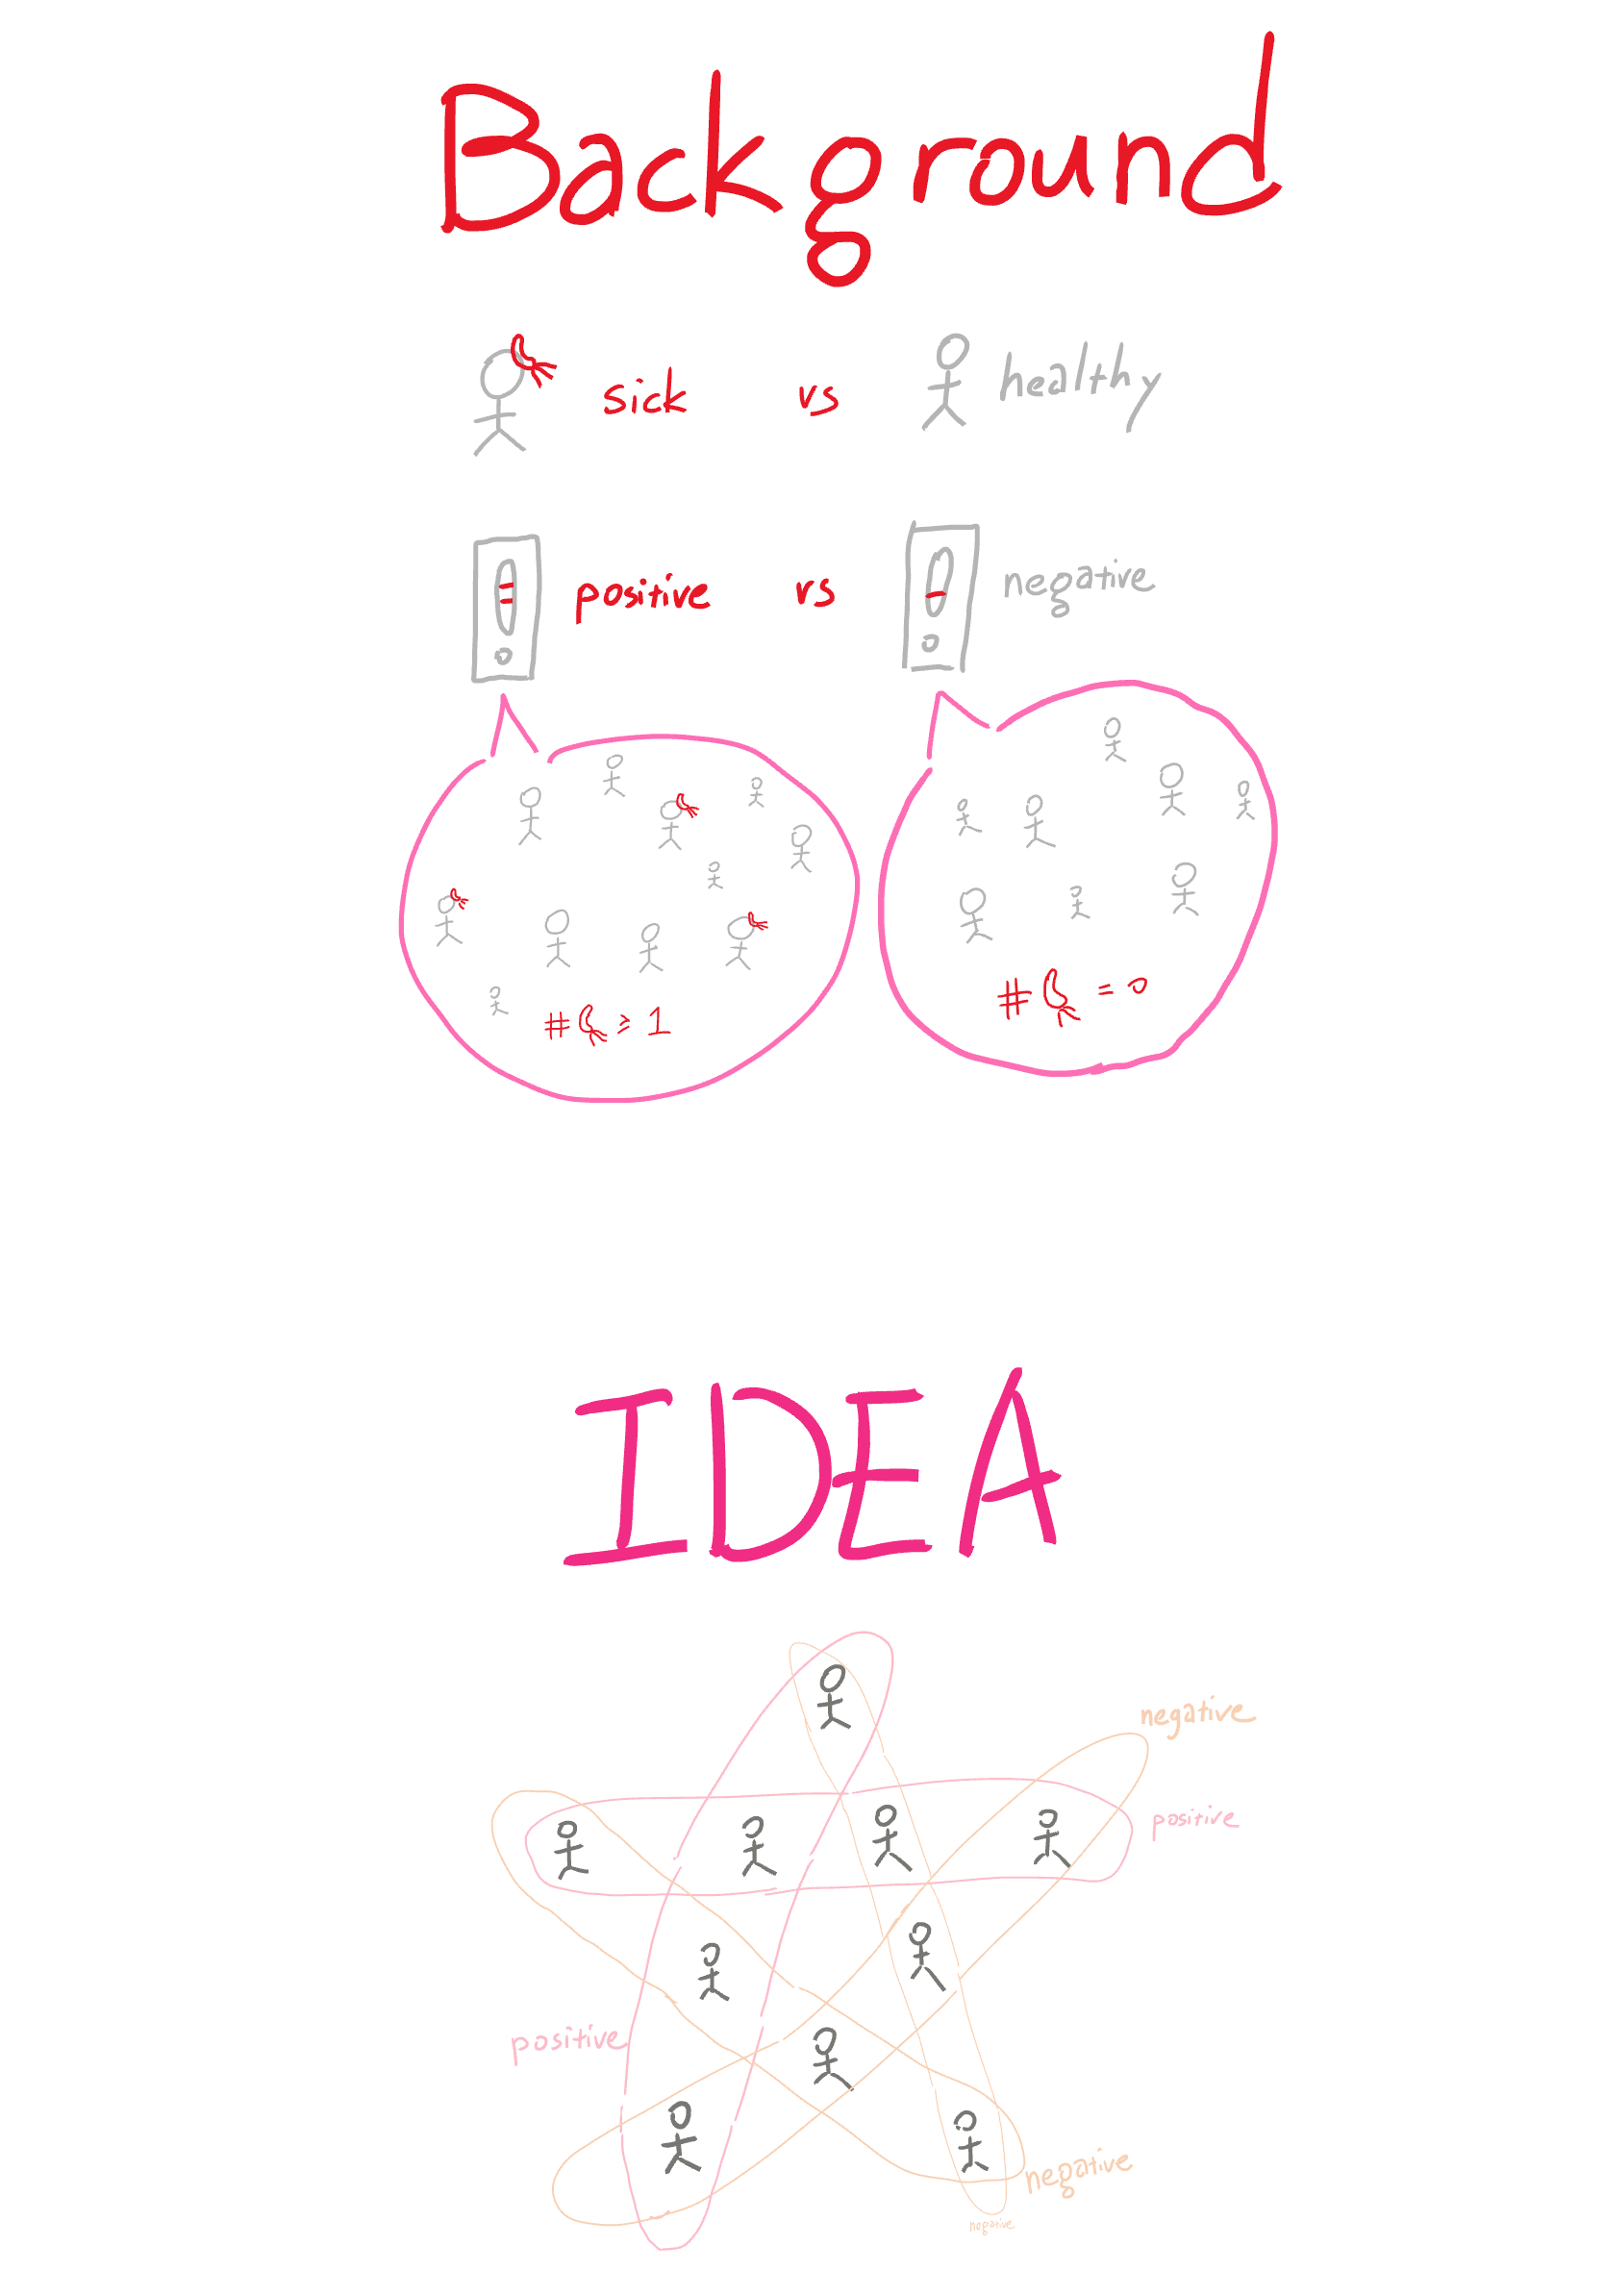 Background
sick vs healthy
positive vs negative
# ≥ 1
# = 0
IDEA
negative
positive
positive
negative
negative